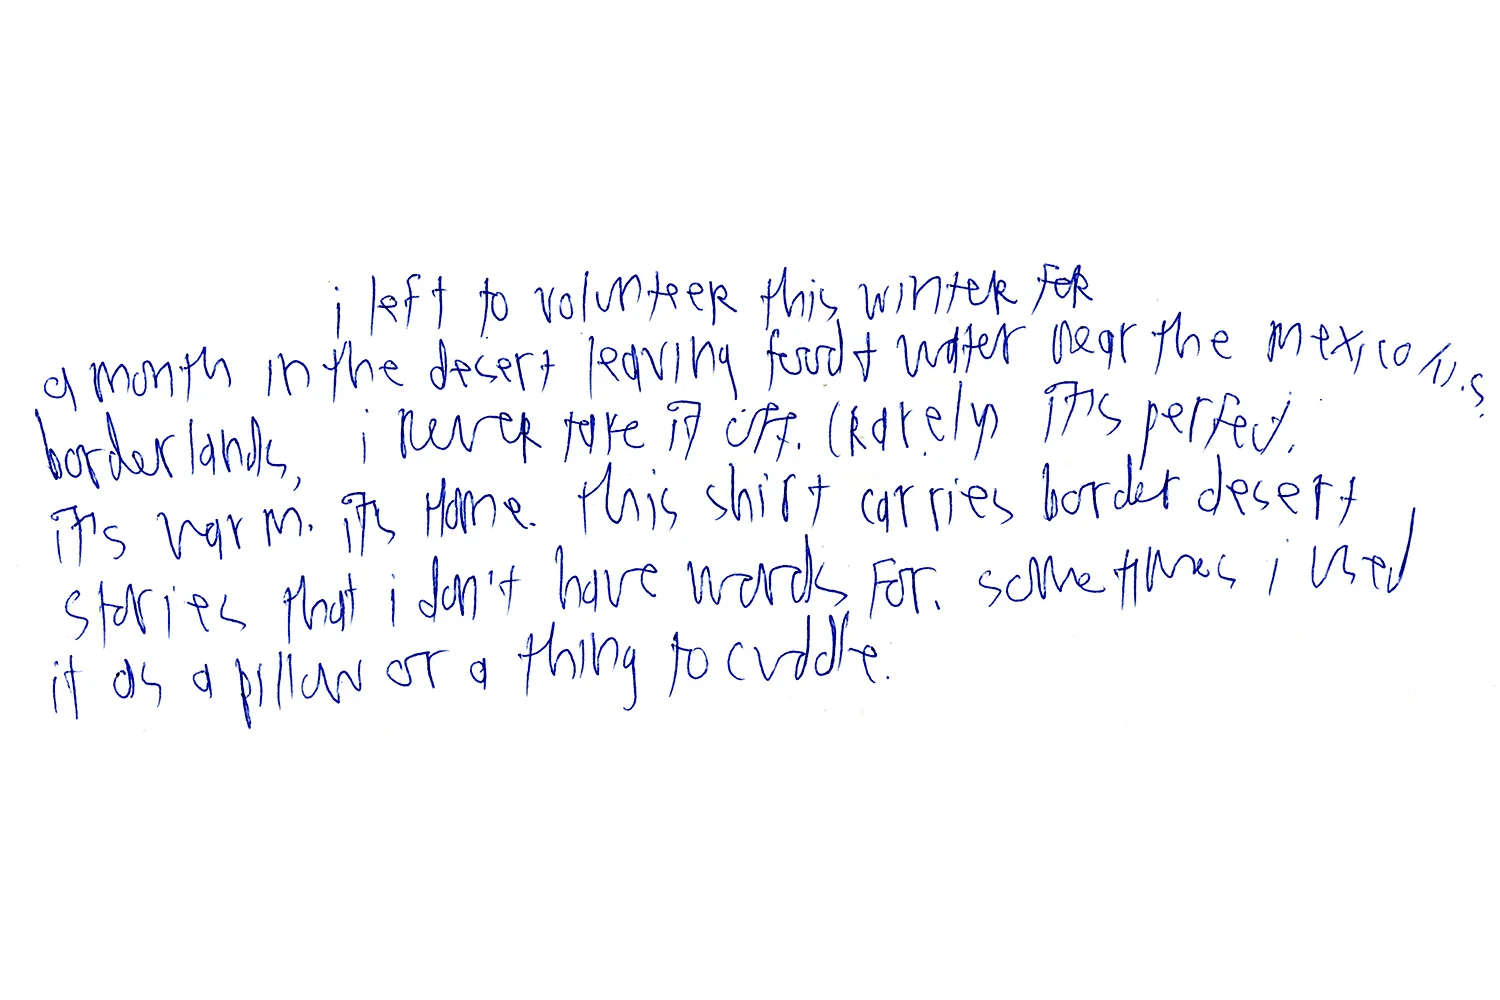 i left to volunteer this winter for
a month in the desert leaving food + water near the mexico/u.s
borderlands, i never take it off. (rarely) it's perfect.
it's warm. it's Home. this shirt carries border desert
stories that i don't have words for. sometimes i used
it as a pillow or a thing to cuddle.